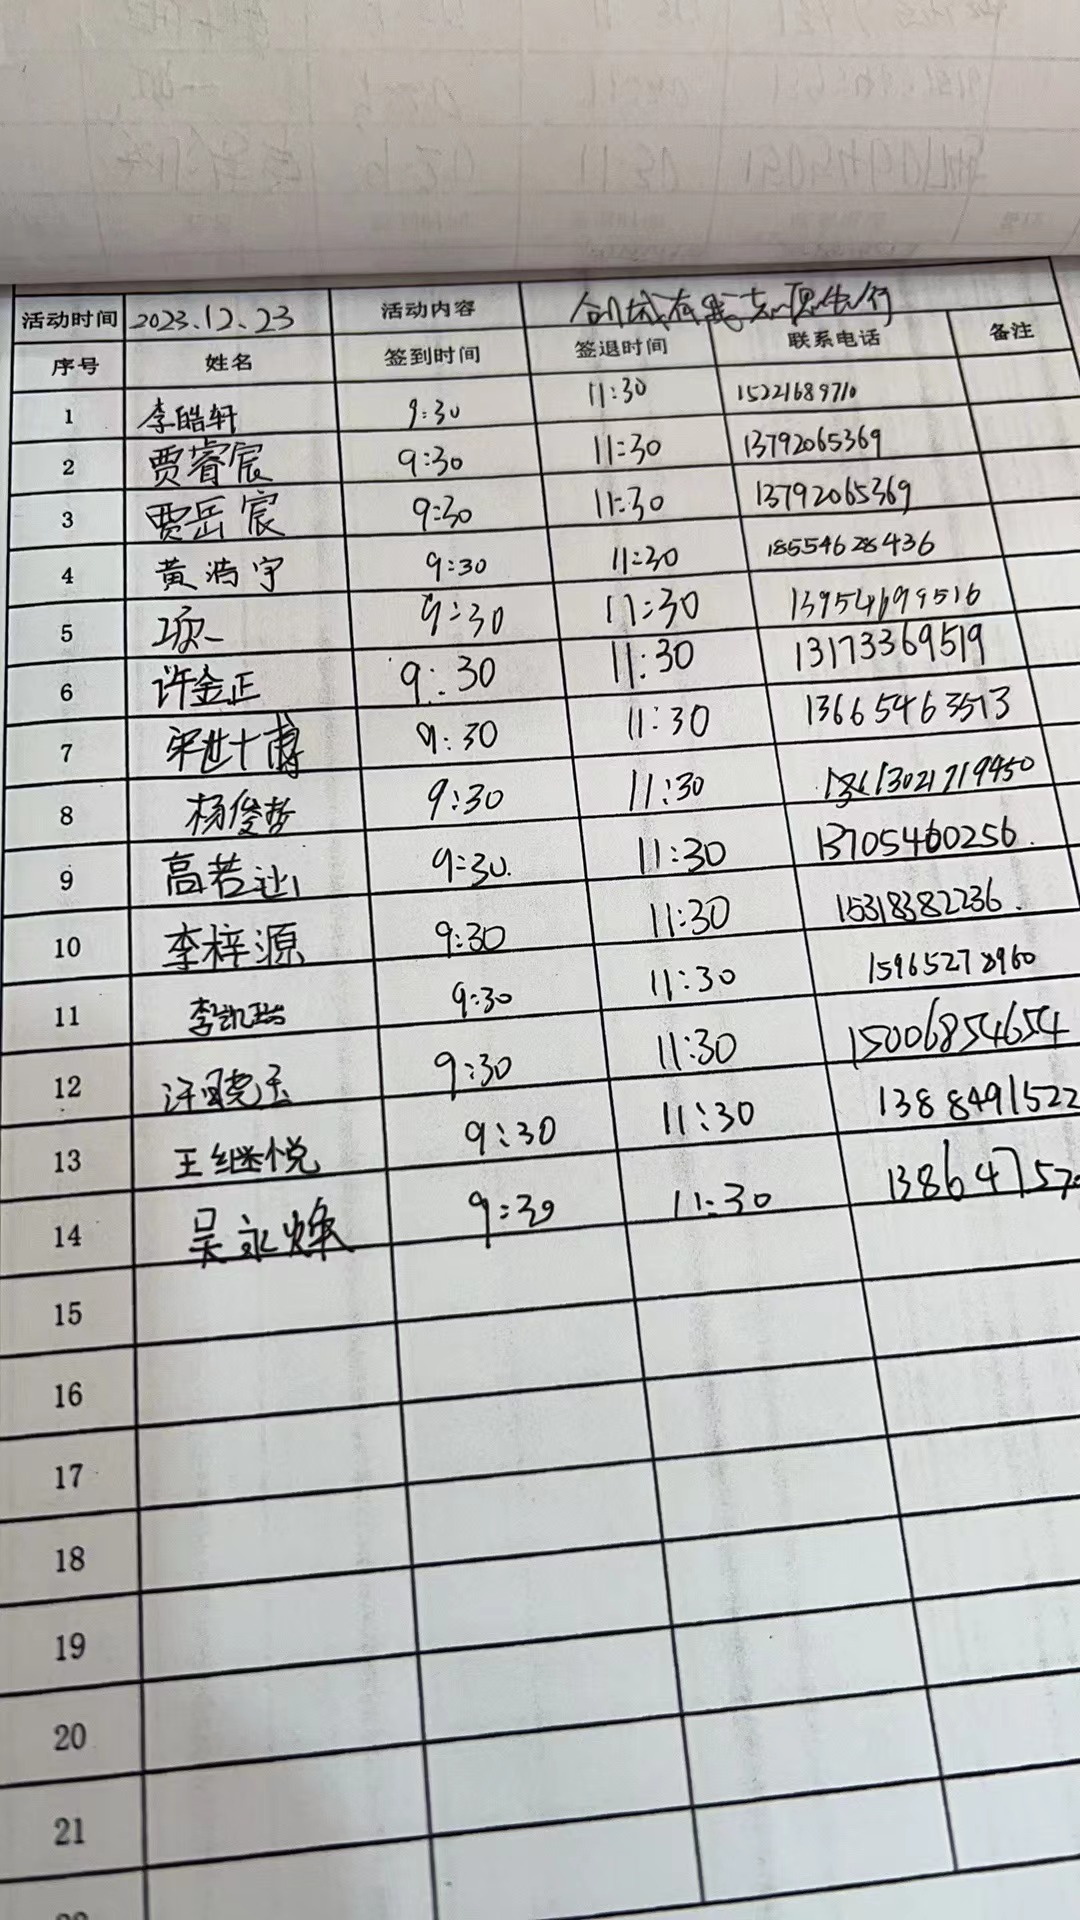 活动时间 2023.12.23 活动内容 创城有我志愿先行
序号 姓名 签到时间 签退时间 联系电话 备注
1 李皓轩 9:30 11:30 15221689710
2 贾睿宸 9:30 11:30 13792065369
3 贾岳宸 9:30 11:30 13792065369
4 黄浩宇 9:30 11:30 18554628436
5 9:30 11:30 13954699516
6 许金正 9:30 11:30 13173369519
7 宋世博 9:30 11:30 13665463513
8 杨俊哲 9:30 11:30
9 高若 9:30. 11:30 13705460256.
10 李梓源 9:30 11:30 15318382236.
11 李凯瑞 9:30 11:30 15965278960
12 9:30 11:30 15006854654
13 王继悦 9:30 11:30 1388491522
14 吴永 9:30 11:30 138647570
15
16
17
18
19
20
21